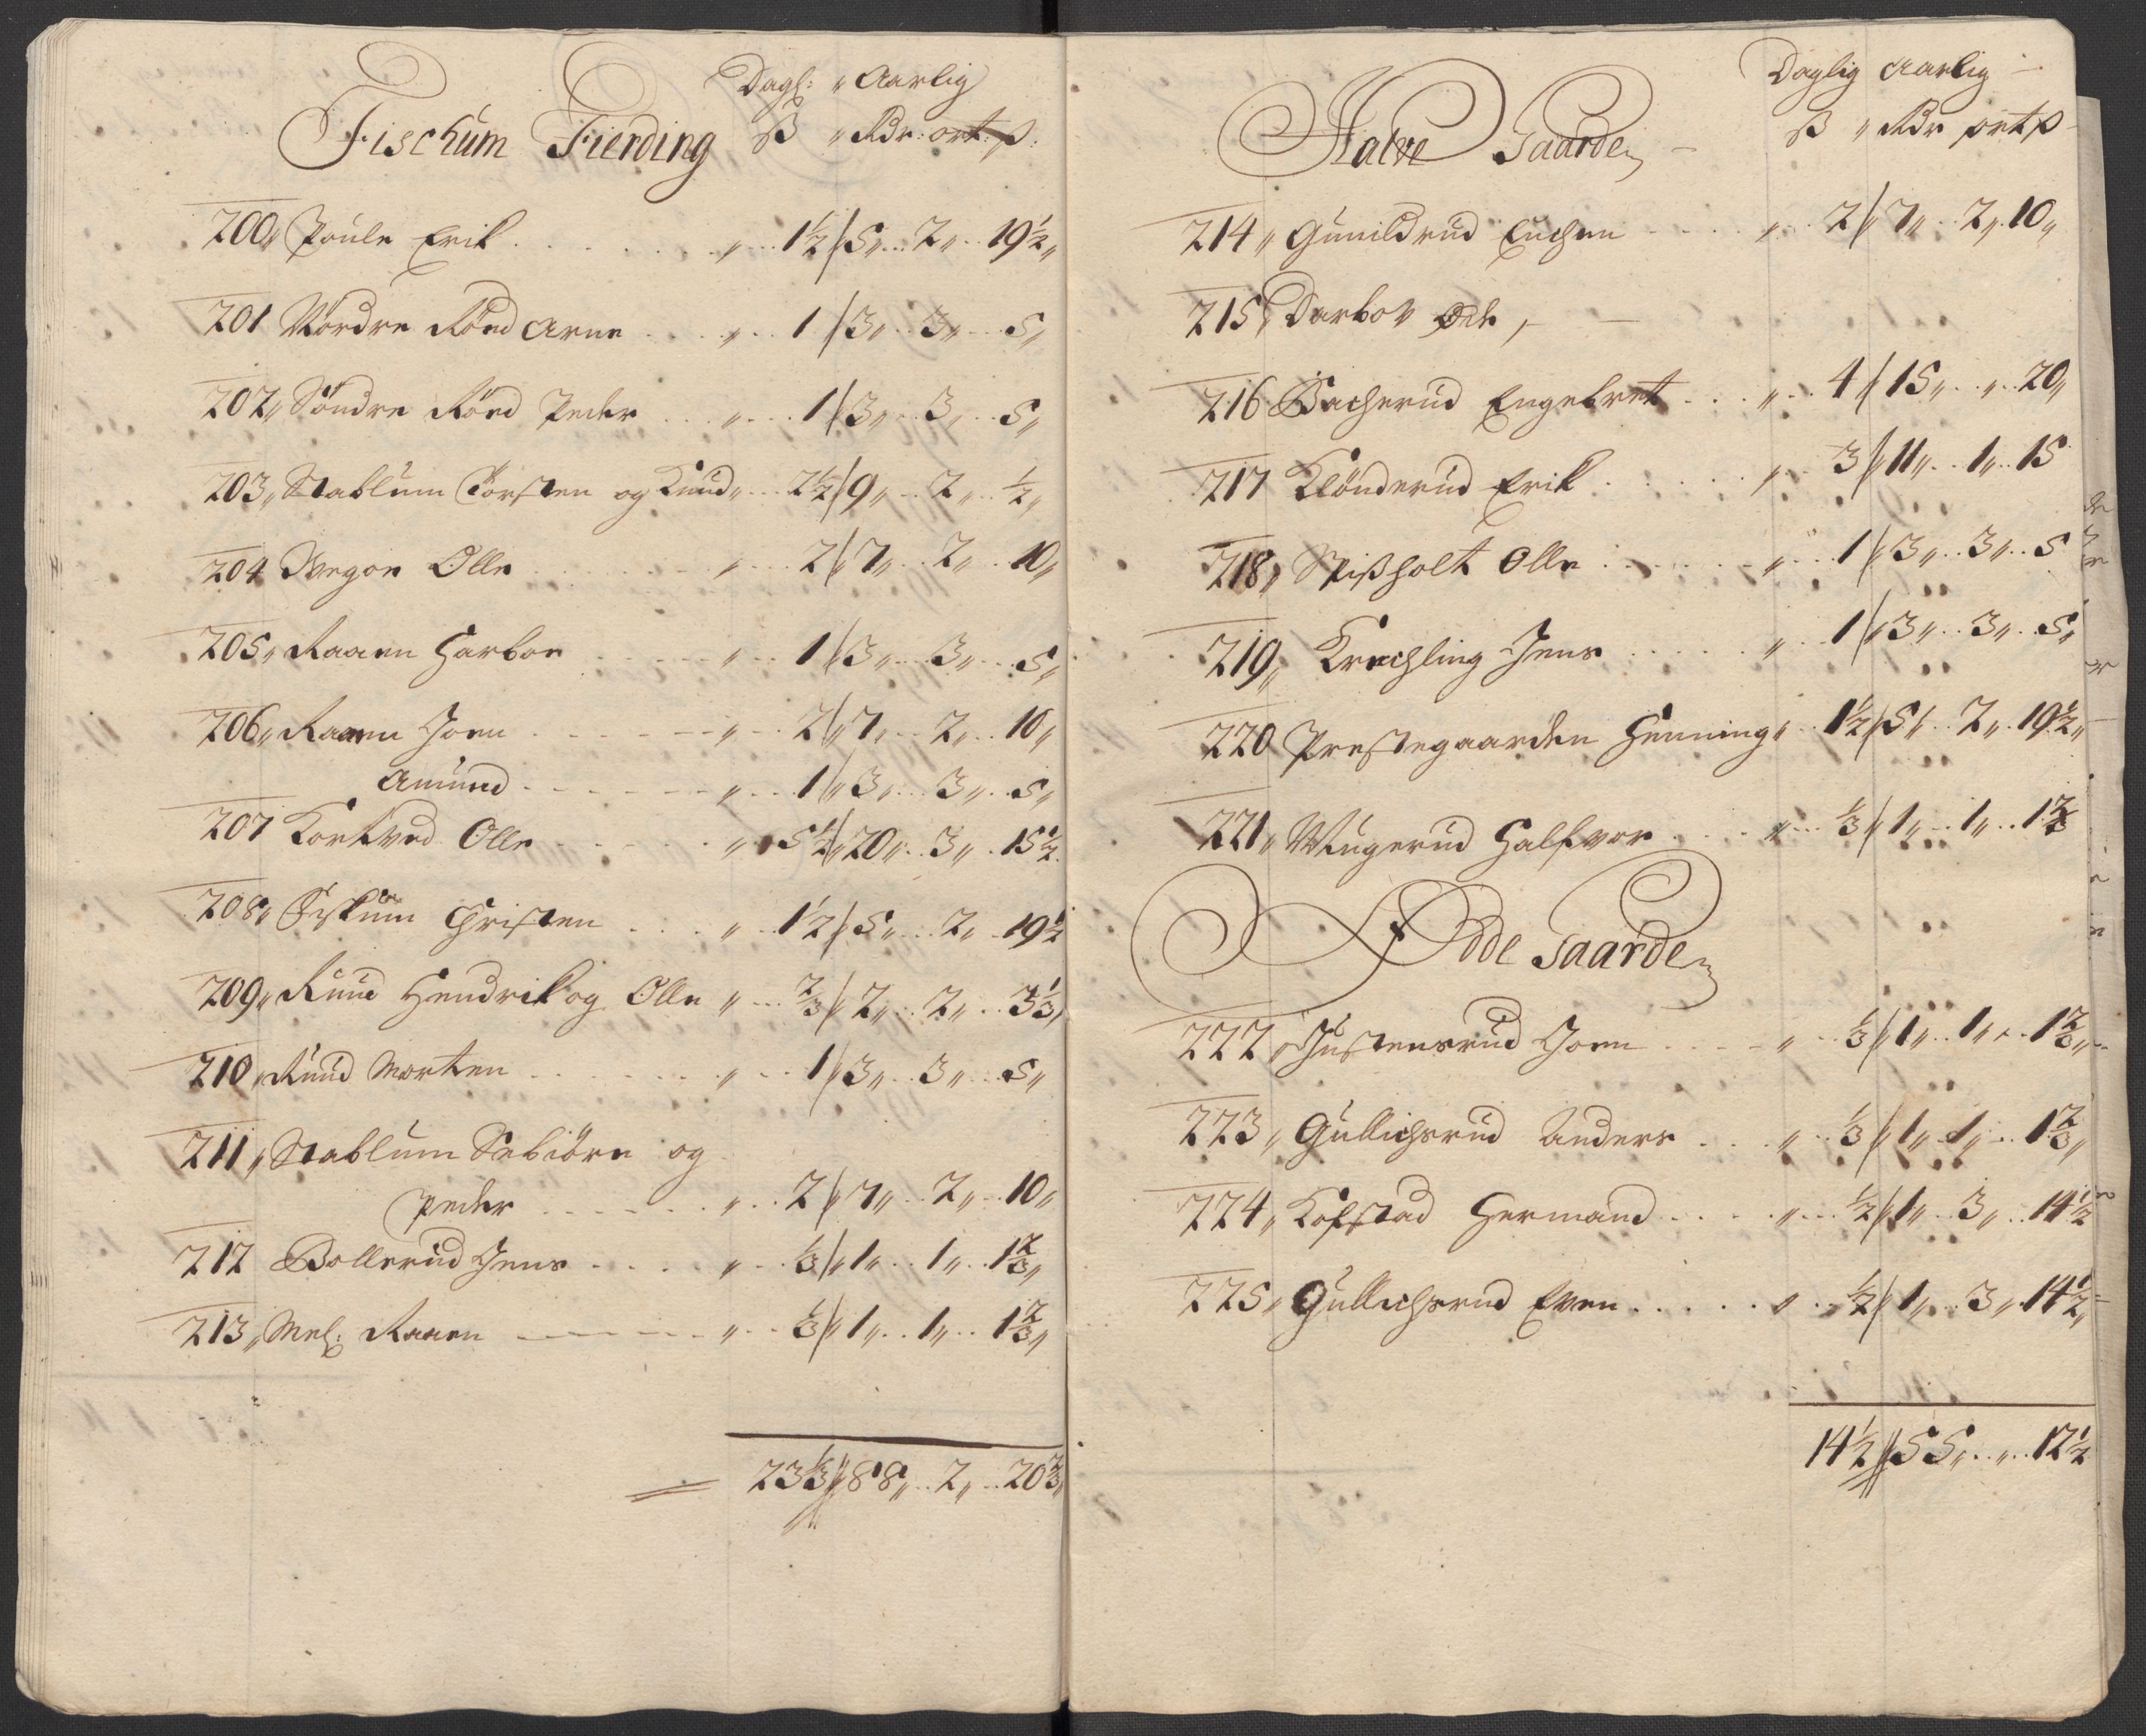 Dagl: „ Aarlig
Fischum Fierding ß „ Rdr: ort: ß:
200„ Poule Erik . . . „ . . 1½ // 5„ . . 2„ . . 19½„
201 Nordre Röed Arne . . . „ . . 1 // 3„ . . 3„ . . 5„
202„ Söndre Röed Peder . . . „ . . 1 // 3„ . . 3„ . . 5„
203„ Stablum Torsten og Knud„ . . 2½ // 9„ . . 2„ . . ½„
204 Wegon Olle . . . „ . . 2 // 7„ . . 2„ . . 10„
205„ Raaen Harbor . . . „ . . 1 // 3„ . . 3„ . . 5„
206„ Raaen Joen . . . „ . . 2 // 7„ . . 2„ . . 10„
Amund . . . „ . . 1 // 3„ . . 3„ . . 5„
207 Kortved Olle . . . „ 5½ // 20„ . . 3„ . . 15½
208„ Fiskum Christen . . . „ . . 1½ // 5„ . . 2„ . . 19½
209„ Ruud Hendrik og Olle „ . . ⅔ // 2„ . . 2„ . . 3⅓„
210„ Ruud Morten . . . „ . . 1 // 3„ . . 3„ . . 5„
211„ Stablum Sebiörn og
Peder . . . „ . . 2 // 7„ . . 2„ . . 10„
212 Bollerud Jens . . . „ . . ⅓ // 1„ . . 1„ . . 1⅔„
213„ Mel: Raaen . . . „ . . ⅓ // 1„ . . 1„ . . 1⅔„
23⅓ // 88„ . . 2„ . . 20⅔„
Daglig Aarlig
Halve Gaarde ß „ Rdr ort ß
214„ Gunildrud Euchen . . . „ . . 2 // 7„ . . 2„ 10„
215„ Darbov Öde,
216 Bacherud Engebret . . . „ . . 4 // 15„ . . „ . . 20„
217 Klönderud Erik . . . „ . . 3 // 11„ . . 1„ . . 15
218„ Spißholt Olle . . . „ . . 1 // 3„ . . 3„ . . 5
219„ Krechling Jens . . . „ . . 1 // 3„ . . 3„ . . 5„
220 Prestegaarden Henning„ . . 1½ // 5„ . . 2„ . . 19½„
221„ Wugerud Halfvor . . . „ . . ⅓ // 1„ . . 1„ . . 1⅔
Ödde Gaarde
222„ Justensrud Joen . . . „ . . ⅓ // 1„ . . 1„ . . 1⅔„
223„ Gullichsrud Anders . . . „ . . ⅓ // 1„ . . 1„ . . 1⅔„
224„ Kopstad Hermand . . . „ . . ½ // 1„ . . 3„ . . 14½
225„ Gullichsrud Even . . . „ . . ½ // 1„ . . 3„ . . 14½„
14½ // 55„ . . „ . . 12½